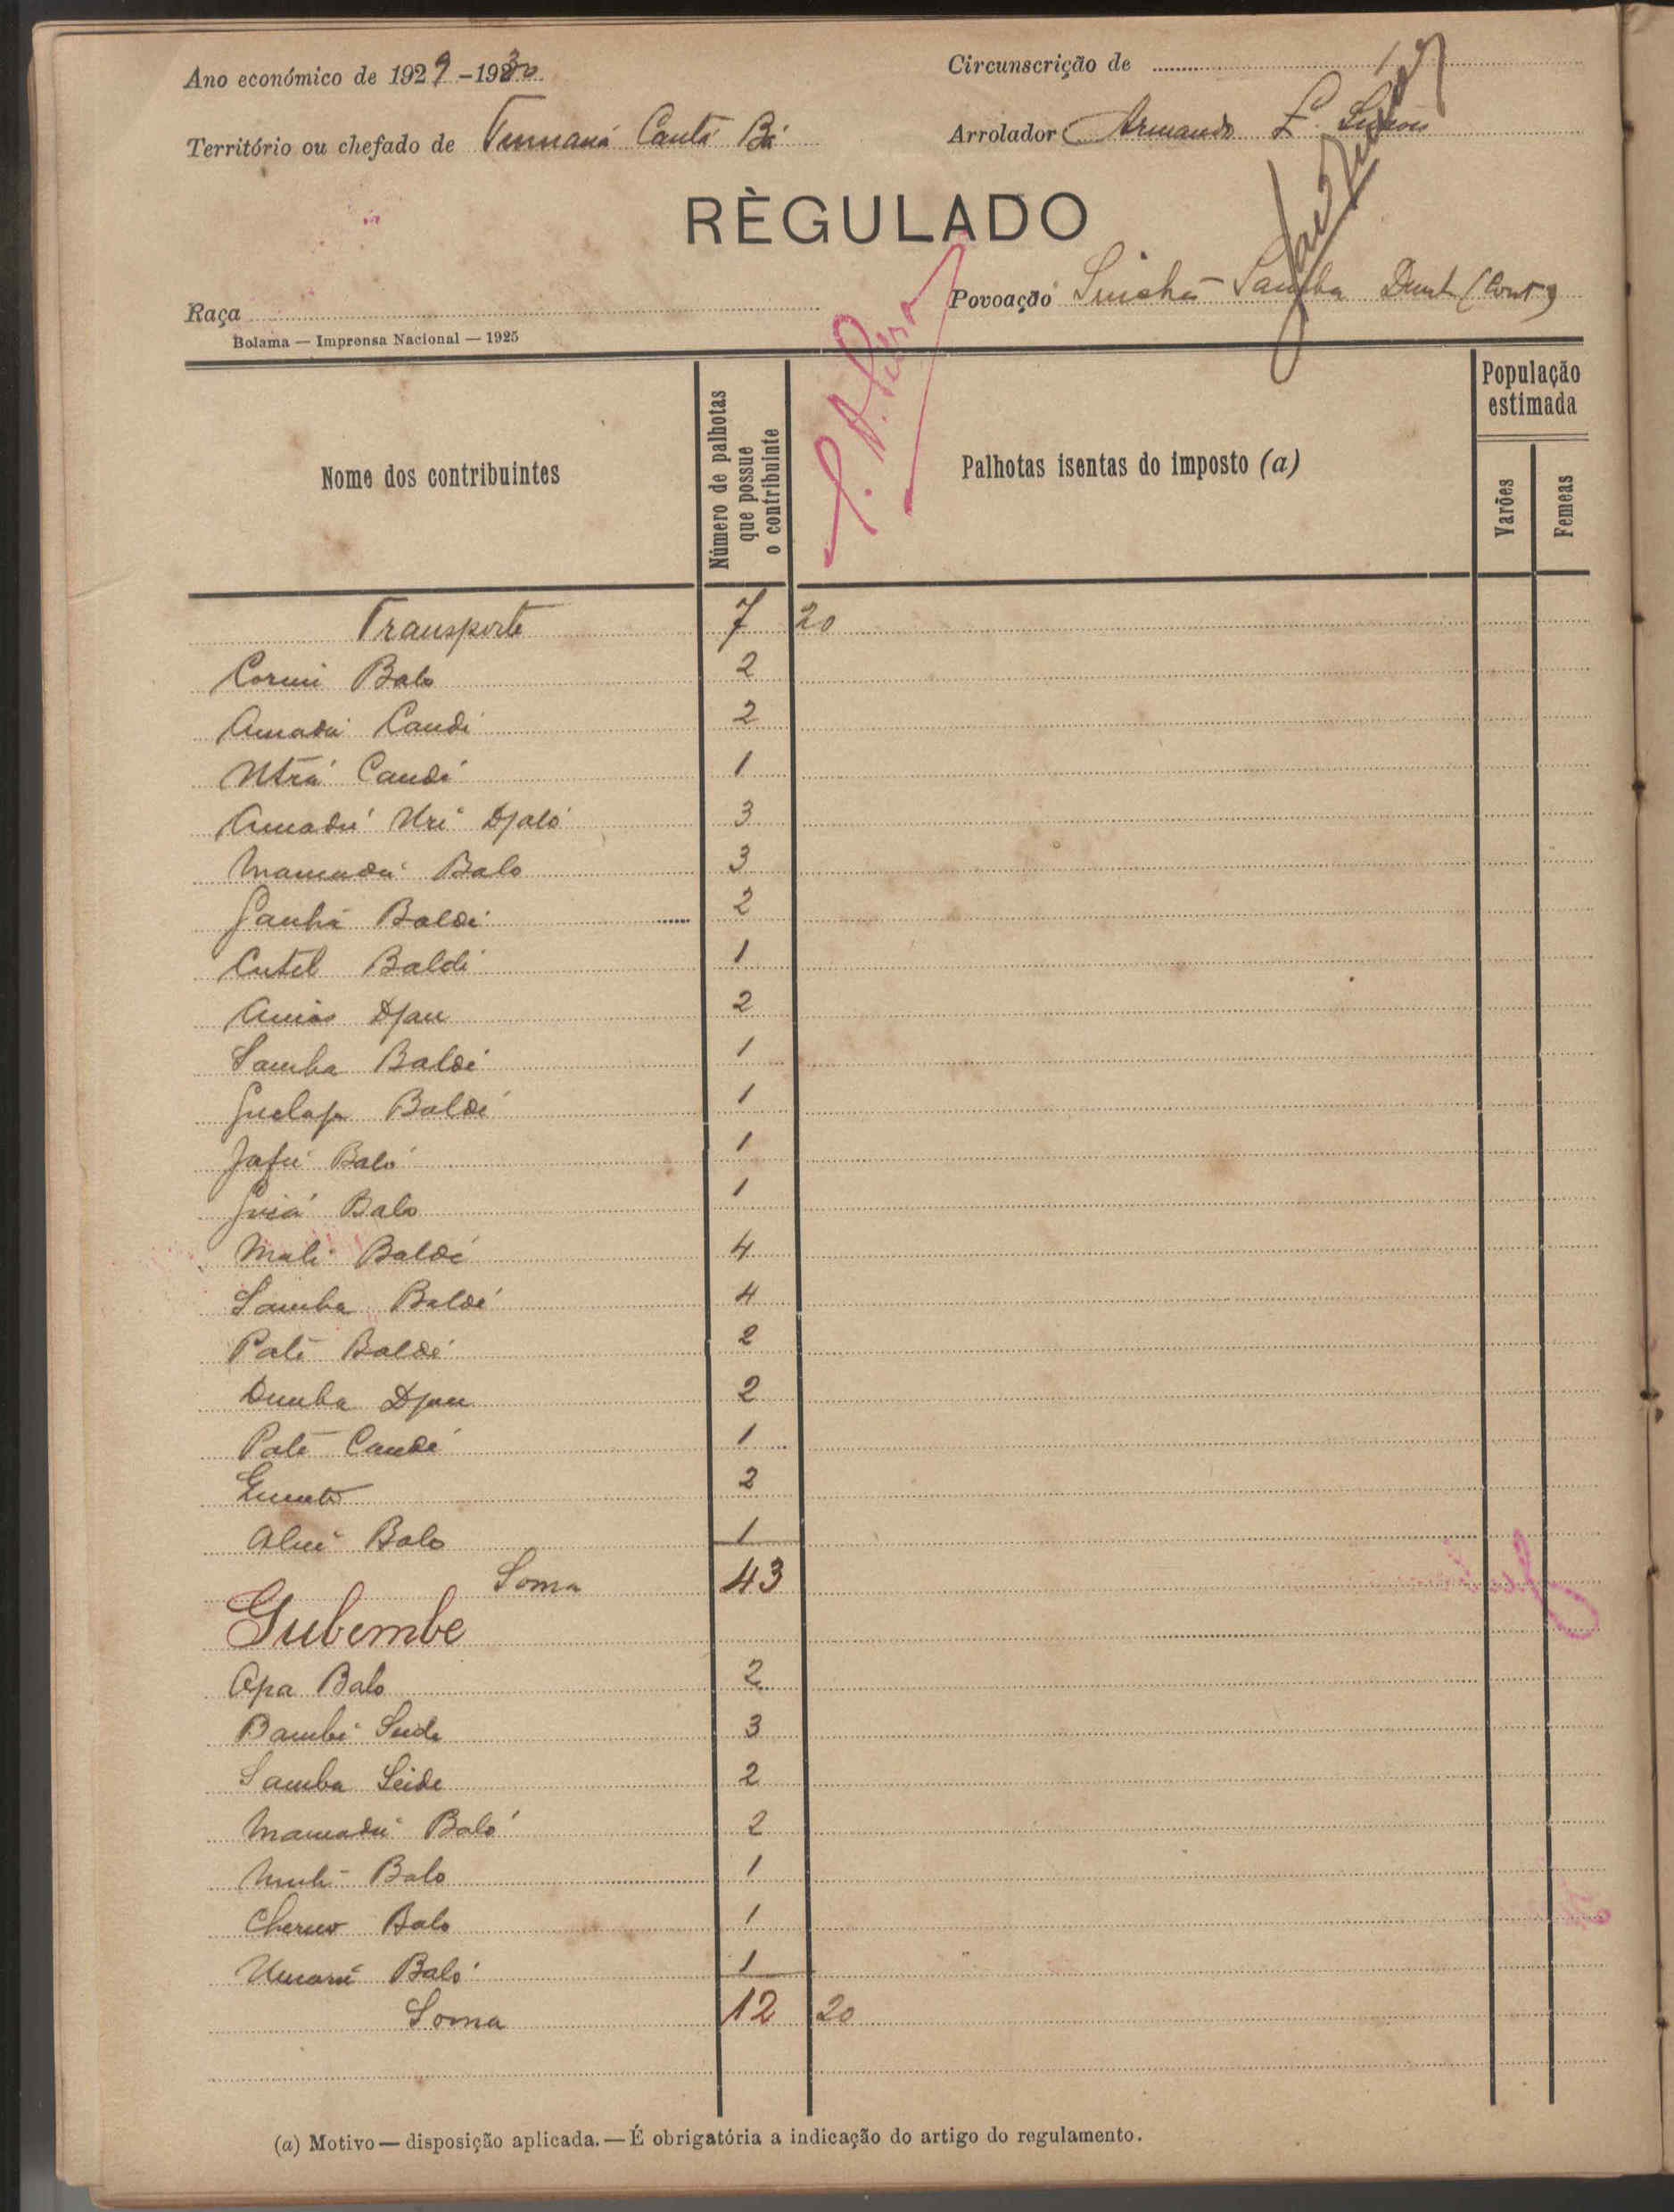 Ano económico de 1929-1930
Circunscrição de
Território ou chefado de Canta Bá
Arrolador Armando
RÈGULADO
Povoação Sinchã Samba (Cont)
Raça
Bolama — Imprensa Nacional — 1925
Nome dos contribuintes
Número de palhotas que possue o contribuinte
Palhotas isentas do imposto (a)
População estimada
Varões
Femeas
Transporte 7 20
Balo 2
Amadú Candi 2
Candé 1
Amadú Uri Djaló 3
Mamadú Balo 3
Baldé 2
Cutel Baldé 1
Djau 2
Samba Baldé 1
Baldé 1
Jafú Baló 1
Balo 1
Mali Baldé 4
Samba Baldé 4
Paté Baldé 2
Demba Djau 2
Paté Candé 1
2
Balo 1
Soma 43
Gubembe
Apa Balo 2
Bambé 3
Samba Seide 2
Mamadú Baló 2
Balo 1
Cherno Balo 1
Umarú Baló 1
Soma 12 20
(a) Motivo — disposição aplicada. — É obrigatória a indicação do artigo do regulamento.